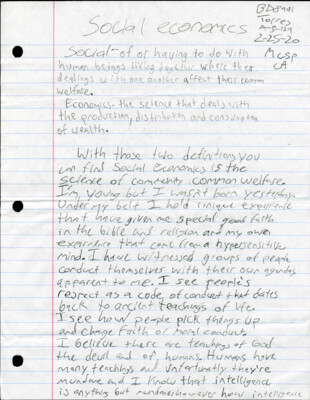 Social economics
Torres
2-25-20
Social - of or having to do with
MCSP
human beings living together where their
CA
dealings with one another affect their common
welfare.
Economics: the science that deals with
the production, distribution and consumption
of wealth.
With those two definitions you
can find Social Economics is the
science of community common welfare.
I'm young but I wasn't born yesterday.
Under my belt I hold unique experience
that have given me special good faith
in the bible and religion and my own
experience that come from a hypersensitive
mind. I have witnessed groups of people
conduct themselves with their own agendas
apparent to me. I see people's
respect as a code of conduct that dates
back to ancient teachings of life.
I see how people pick things up
and change faith or moral conduct.
I believe there are teachings of God
the devil and of, humans. Humans have
many teachings and Unfortunetly they're
mundane and I know that intelligence
is anything but mundane however how intelligence